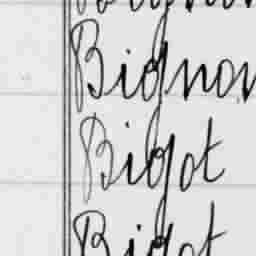 Bignon
Bigot
Bigot